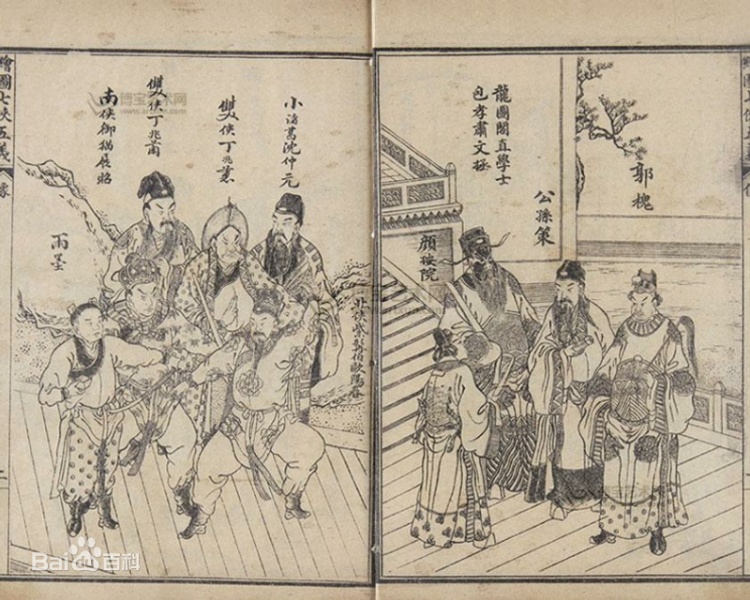 郭槐
公孫策
龍圖閣直學士
包孝肅文拯
顏按院
小諸葛沈仲元
雙俠丁兆蕙
雙俠丁兆蘭
南俠御猫展昭
北俠紫髯伯歐陽春
雨墨
繪圖七俠五義
像
二
博宝艺术网
Bai百科